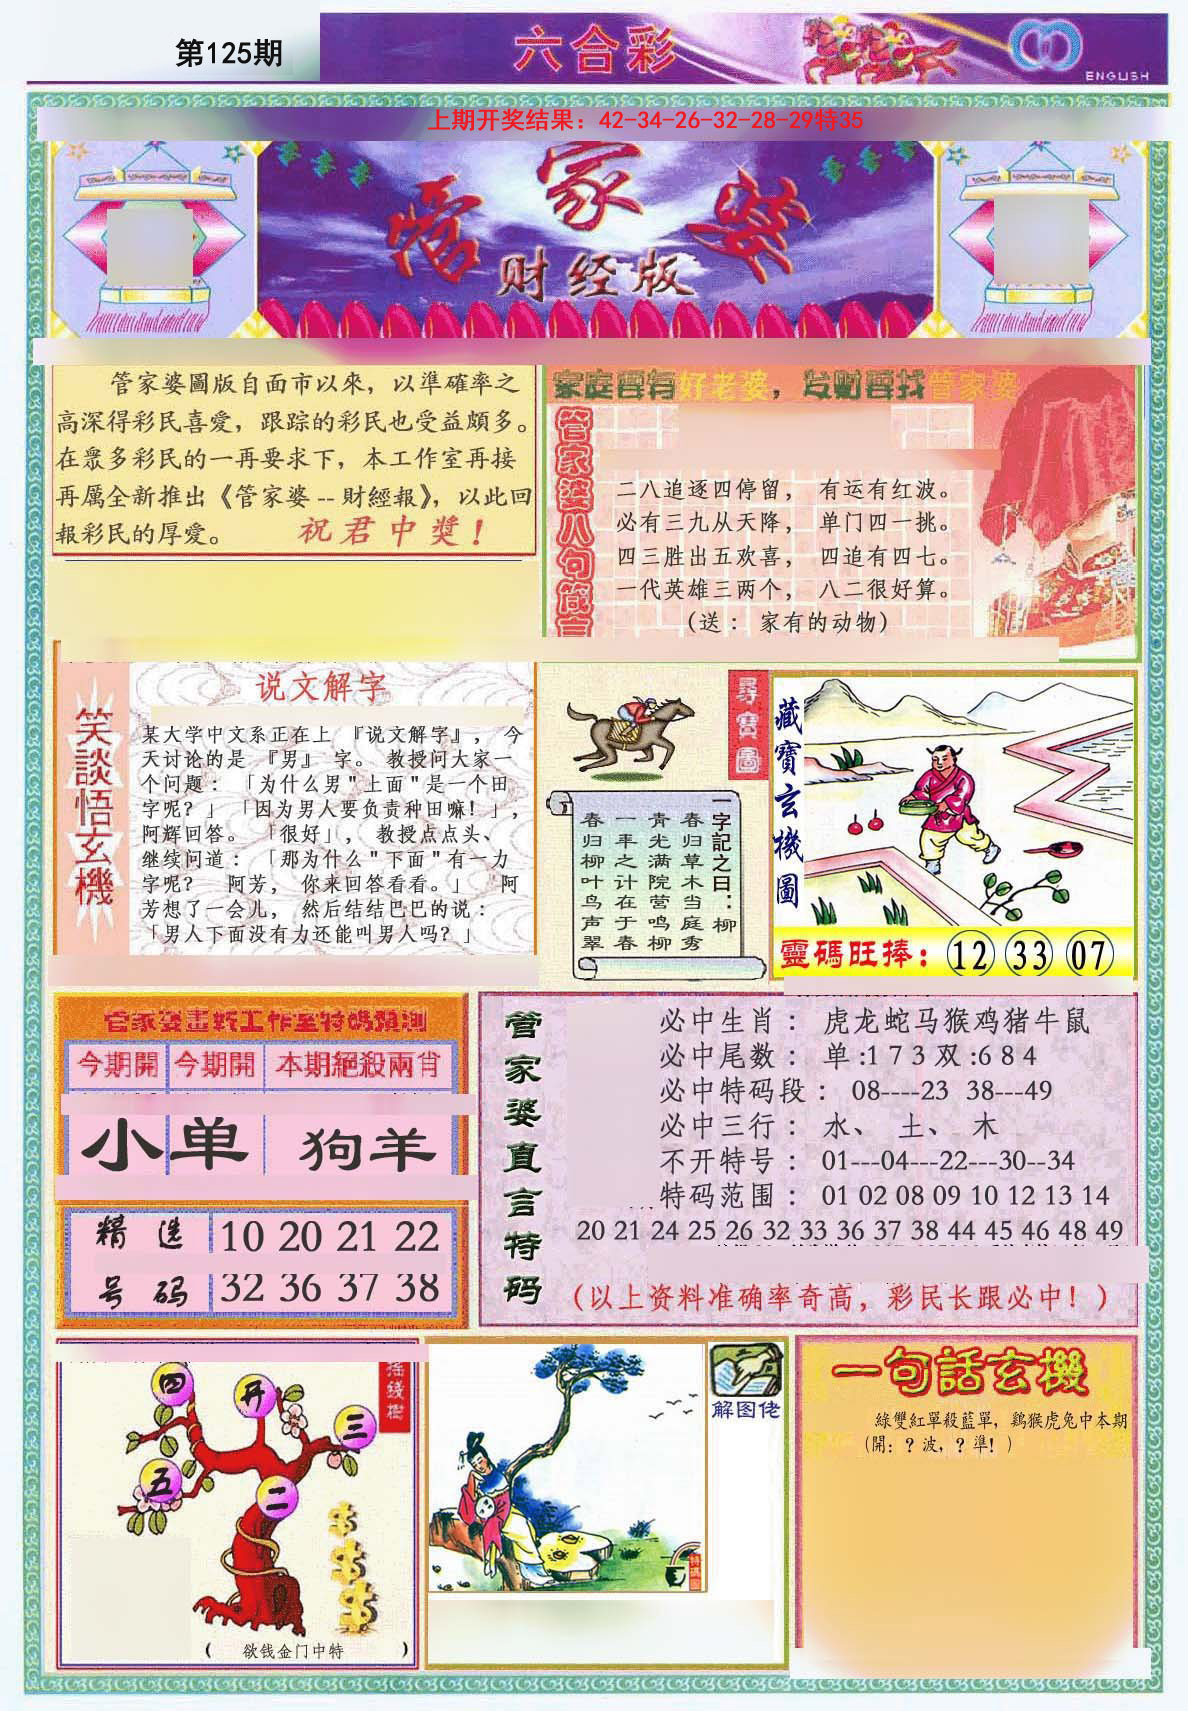 第125期
六合彩
ENGLISH
上期开奖结果：42-34-26-32-28-29特35
管家婆
财经版
管家婆圖版自面市以來，以準確率之
高深得彩民喜愛，跟踪的彩民也受益頗多。
在眾多彩民的一再要求下，本工作室再接
再厲全新推出《管家婆--財經報》，以此回
報彩民的厚愛。 祝君中獎！
家庭要有好老婆，发财要找管家婆
管家婆八句箴言
二八追逐四停留， 有运有红波。
必有三九从天降， 单门四一挑。
四三胜出五欢喜， 四追有四七。
一代英雄三两个， 八二很好算。
(送： 家有的动物)
笑談悟玄機
说文解字
某大学中文系正在上 『说文解字』， 今
天讨论的是 『男』 字。 教授问大家一
个问题： 「为什么男"上面"是一个田
字呢？」「因为男人要负责种田嘛！」，
阿辉回答。 「很好」， 教授点点头、
继续问道： 「那为什么"下面"有一力
字呢？ 阿芳， 你来回答看看。」 阿
芳想了一会儿， 然后结结巴巴的说：
「男人下面没有力还能叫男人吗？」
尋寶圖
一字記之曰：柳
春归草木当庭秀
青光满院营鸣柳
一年之计在于春
春归柳叶鸟声翠
藏寶玄機圖
靈碼旺捧： 12 33 07
管家婆畫報工作室特碼預測
今期開 今期開 本期絕殺兩肖
小 单 狗羊
精选 10 20 21 22
号码 32 36 37 38
管家婆直言特码
必中生肖： 虎龙蛇马猴鸡猪牛鼠
必中尾数： 单:1 7 3 双:6 8 4
必中特码段： 08----23 38---49
必中三行： 水、 土、 木
不开特号： 01---04---22---30--34
特码范围： 01 02 08 09 10 12 13 14
20 21 24 25 26 32 33 36 37 38 44 45 46 48 49
(以上资料准确率奇高，彩民长跟必中！)
摇钱树
四
开
三
五
二
( 欲钱金门中特 )
解图佬
特碼圖
一句話玄機
綠雙紅單殺藍單，鷄猴虎兔中本期
(開：？波，？準！)